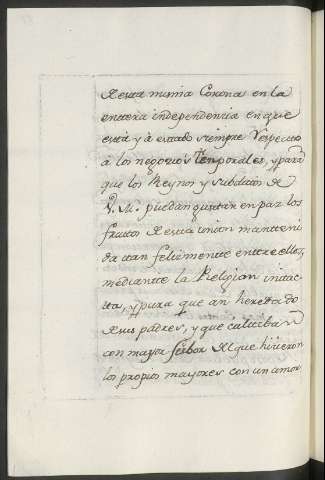 de esta misma Corona en la
entera independencia en que
está y à estado siempre respecto
à los negocios temporales, y para
que los Reynos y subditos de
V. M. puedan gustar en paz los
frutos de esta union manteni
da tan felizmente entre ellos,
mediante la Religion intac
ta, y pura que an heredado
de sus padres, y que cultiban
con mayor ferbor del que hizieron
los propios mayores con un amor